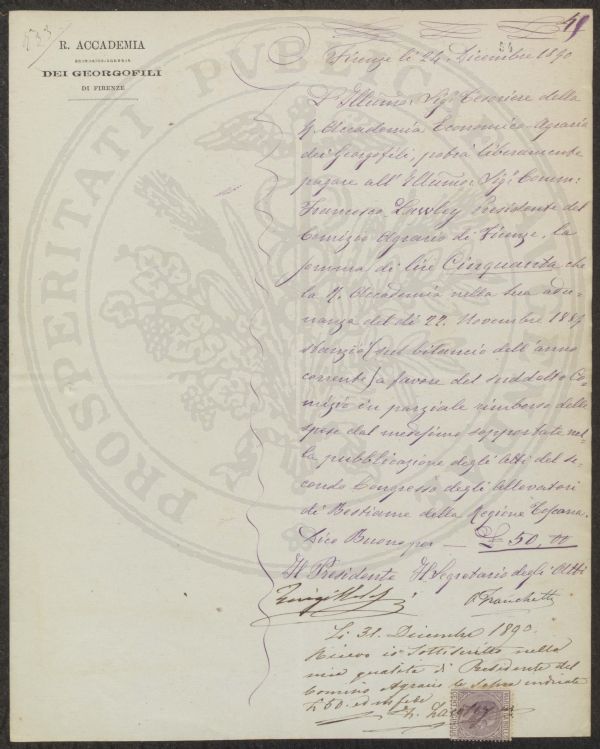 R. ACCADEMIA
ECONOMICO-AGRARIA
DEI GEORGOFILI
DI FIRENZE
PROSPERITATI PUBLICAE
Firenze li 24 Dicembre 1890
L'Illumo: Sig: Tesoriere della
R. Accademia Economico-Agraria
dei Georgofili, potrà liberamente
pagare all'Illumo: Sigr Comm:
Francesco Lawley Presidente del
Comizio Agrario di Firenze, la
somma di lire Cinquanta che
la R. Accademia nella sua adu-
nanza del dì 22. Novembre 1889
stanziò (sul bilancio dell'anno
corrente) a favore del suddetto Co-
mizio in parziale rimborso delle
spese dal medesimo sopportate nel-
la pubblicazione degli Atti del se-
condo Congresso degli Allevatori
di Bestiame della Regione Toscana.
Dico Buono per — £ 50,00
Il Presidente Il Segretario degli Atti
Franchetti
Li 31. Dicembre 1890.
Ricevo io Sottoscritto nella
mia qualità di Presidente del
Comizio Agrario le sopra indicate
£ 50 ed in fede